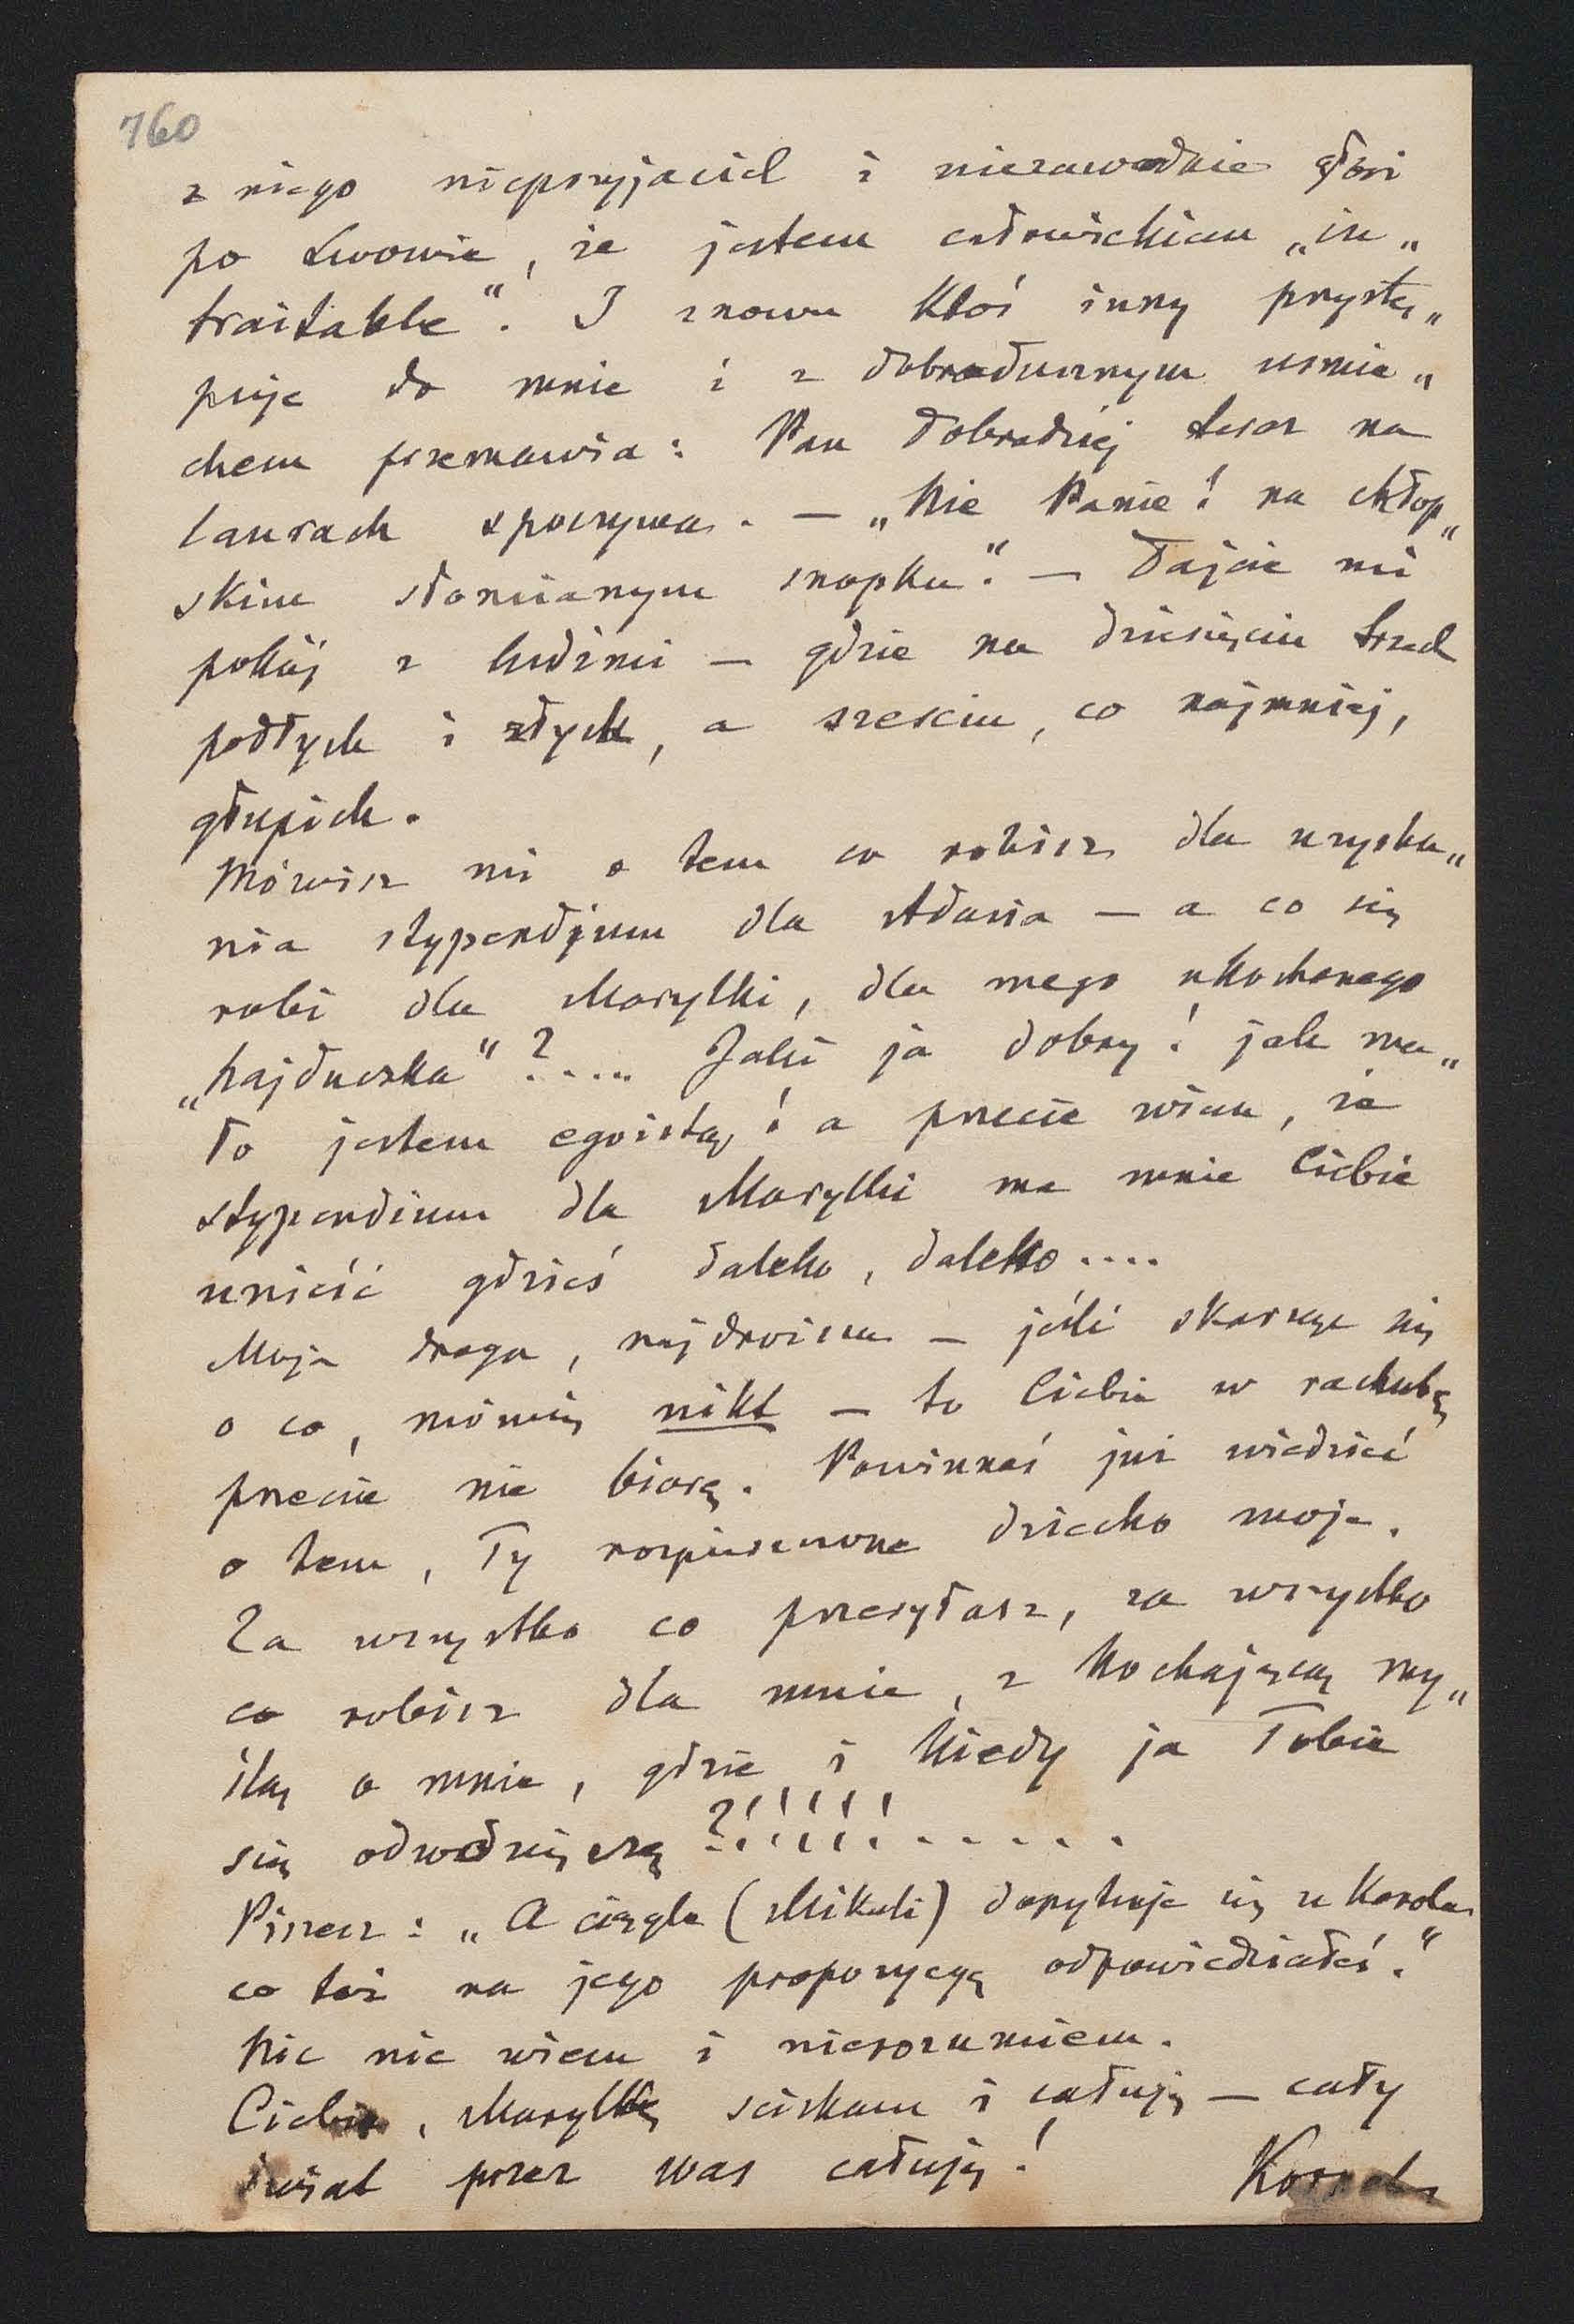 760
z niego nieprzyjaciel i niezawodnie głosi
po Lwowie, że jestem człowiekiem „in„
traitable“. I znowu ktoś inny przystę„
puje do mnie i z dobrodusznym uśmie„
chem przemawia: Pan Dobrodziej teraz na
laurach spoczywa. — „Nie Panie! na chłop„
skim słomianym snopku“. — Dajcie mi
pokój z ludźmi — gdzie na dziesięciu trzech
podłych i złych, a sześciu, co najmniej,
głupich.
Mówisz mi o tem co robisz dla uzyska„
nia stypendjum dla Adasia — a co się
robi dla Marylki, dla mego ukochanego
„hajduczka“?.... Jaki ja dobry! jak ma„
ło jestem egoistą! a przecie wiem, że
stypendium dla Marylki ma mnie Ciebie
unieść gdzieś daleko, daleko....
Moja droga, najdroższa — jeśli skarżę się
o co, mówię nikt — to Ciebie w rachubę
przecie nie biorę. Powinnaś już wiedzieć
o tem, Ty rozpieszczone dziecko moje.
Za wszystko co przesyłasz, za wszystko
co robisz dla mnie, z kochającą my„
ślą o mnie, gdzie i kiedy ja Tobie
się odwdzięczę?!!!!!......
Piszesz: „A ciągle (Mikuli) dopytuje się u Karola
co też na jego propozycyę odpowiedziałeś.“
Nic nie wiem i nierozumiem.
Ciebie, Marylkę ściskam i całuję — cały
świat przez was całuję!
Kornel